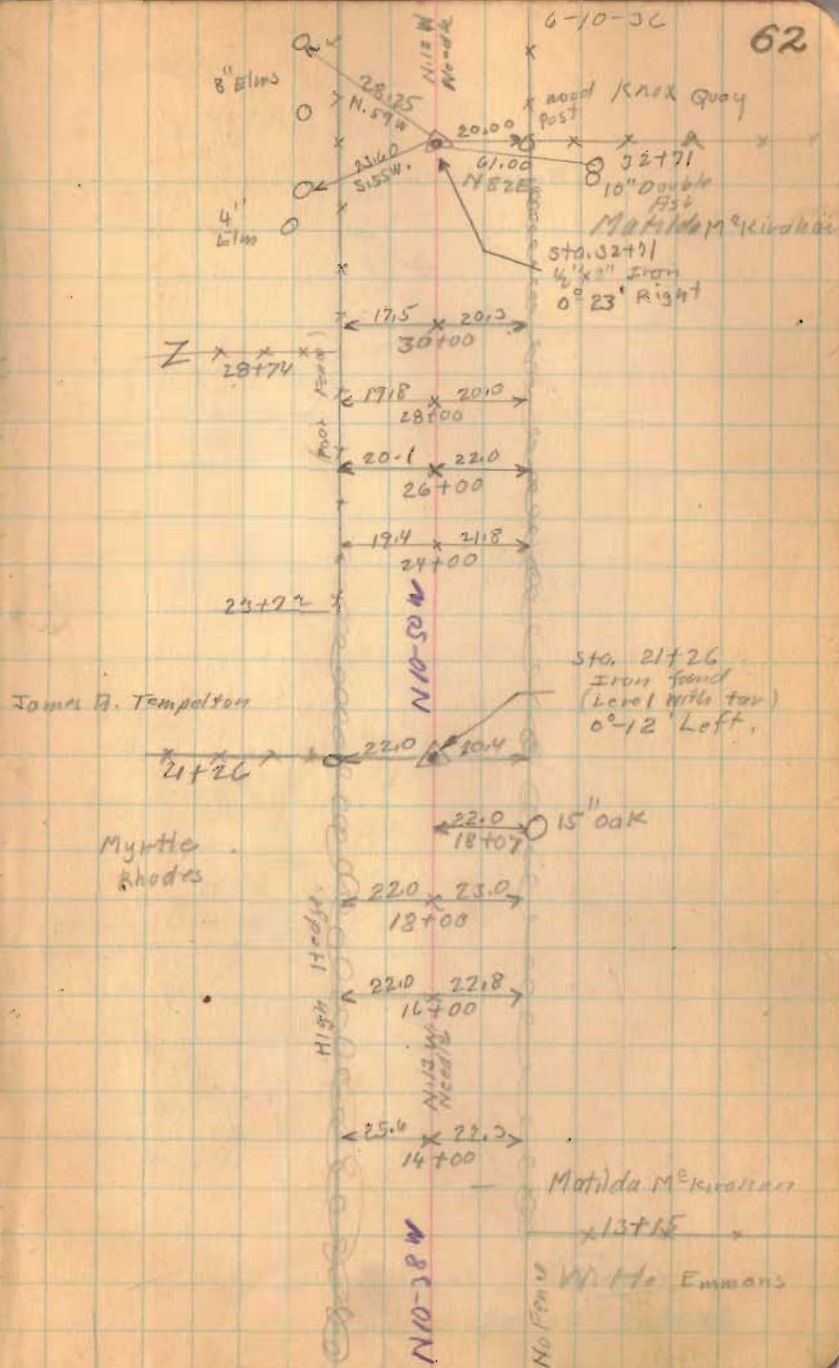 6-10-36
62
N.12 W
Needle
8" Elms
28.25
N. 59 W
wood
Post
Knox Quay
20.00
61.00
N82E
32+71
23.60
S.55W.
10" Double
Ash
4"
Elm
Matilda McKirahan
Sta. 32+71
½"x2" Iron
0° 23' Right
17.5 20.3
30+00
Z
28+74
Poor Fence
19.8 20.0
28+00
20.1 22.0
26+00
19.4 21.8
24+00
N10-50W
Sta. 21+26
Iron found
(Level with tar)
0°-12' Left.
James A. Tempelton
22.0 20.4
21+26
22.0
18+07
15" Oak
Myrtle
Rhodes
22.0 23.0
18+00
High Hedge.
22.0 22.8
16+00
N.12 W
Needle
25.6 22.3
14+00
Matilda McKirahan
13+15
N10-38W
No Fence
Emmons